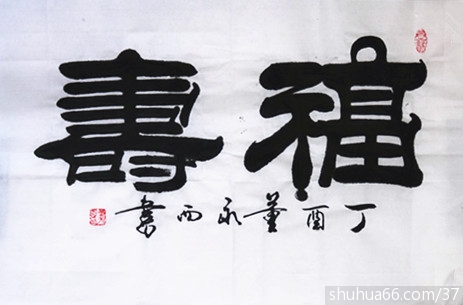 福壽
丁酉董永西書
shuhua66.com/37